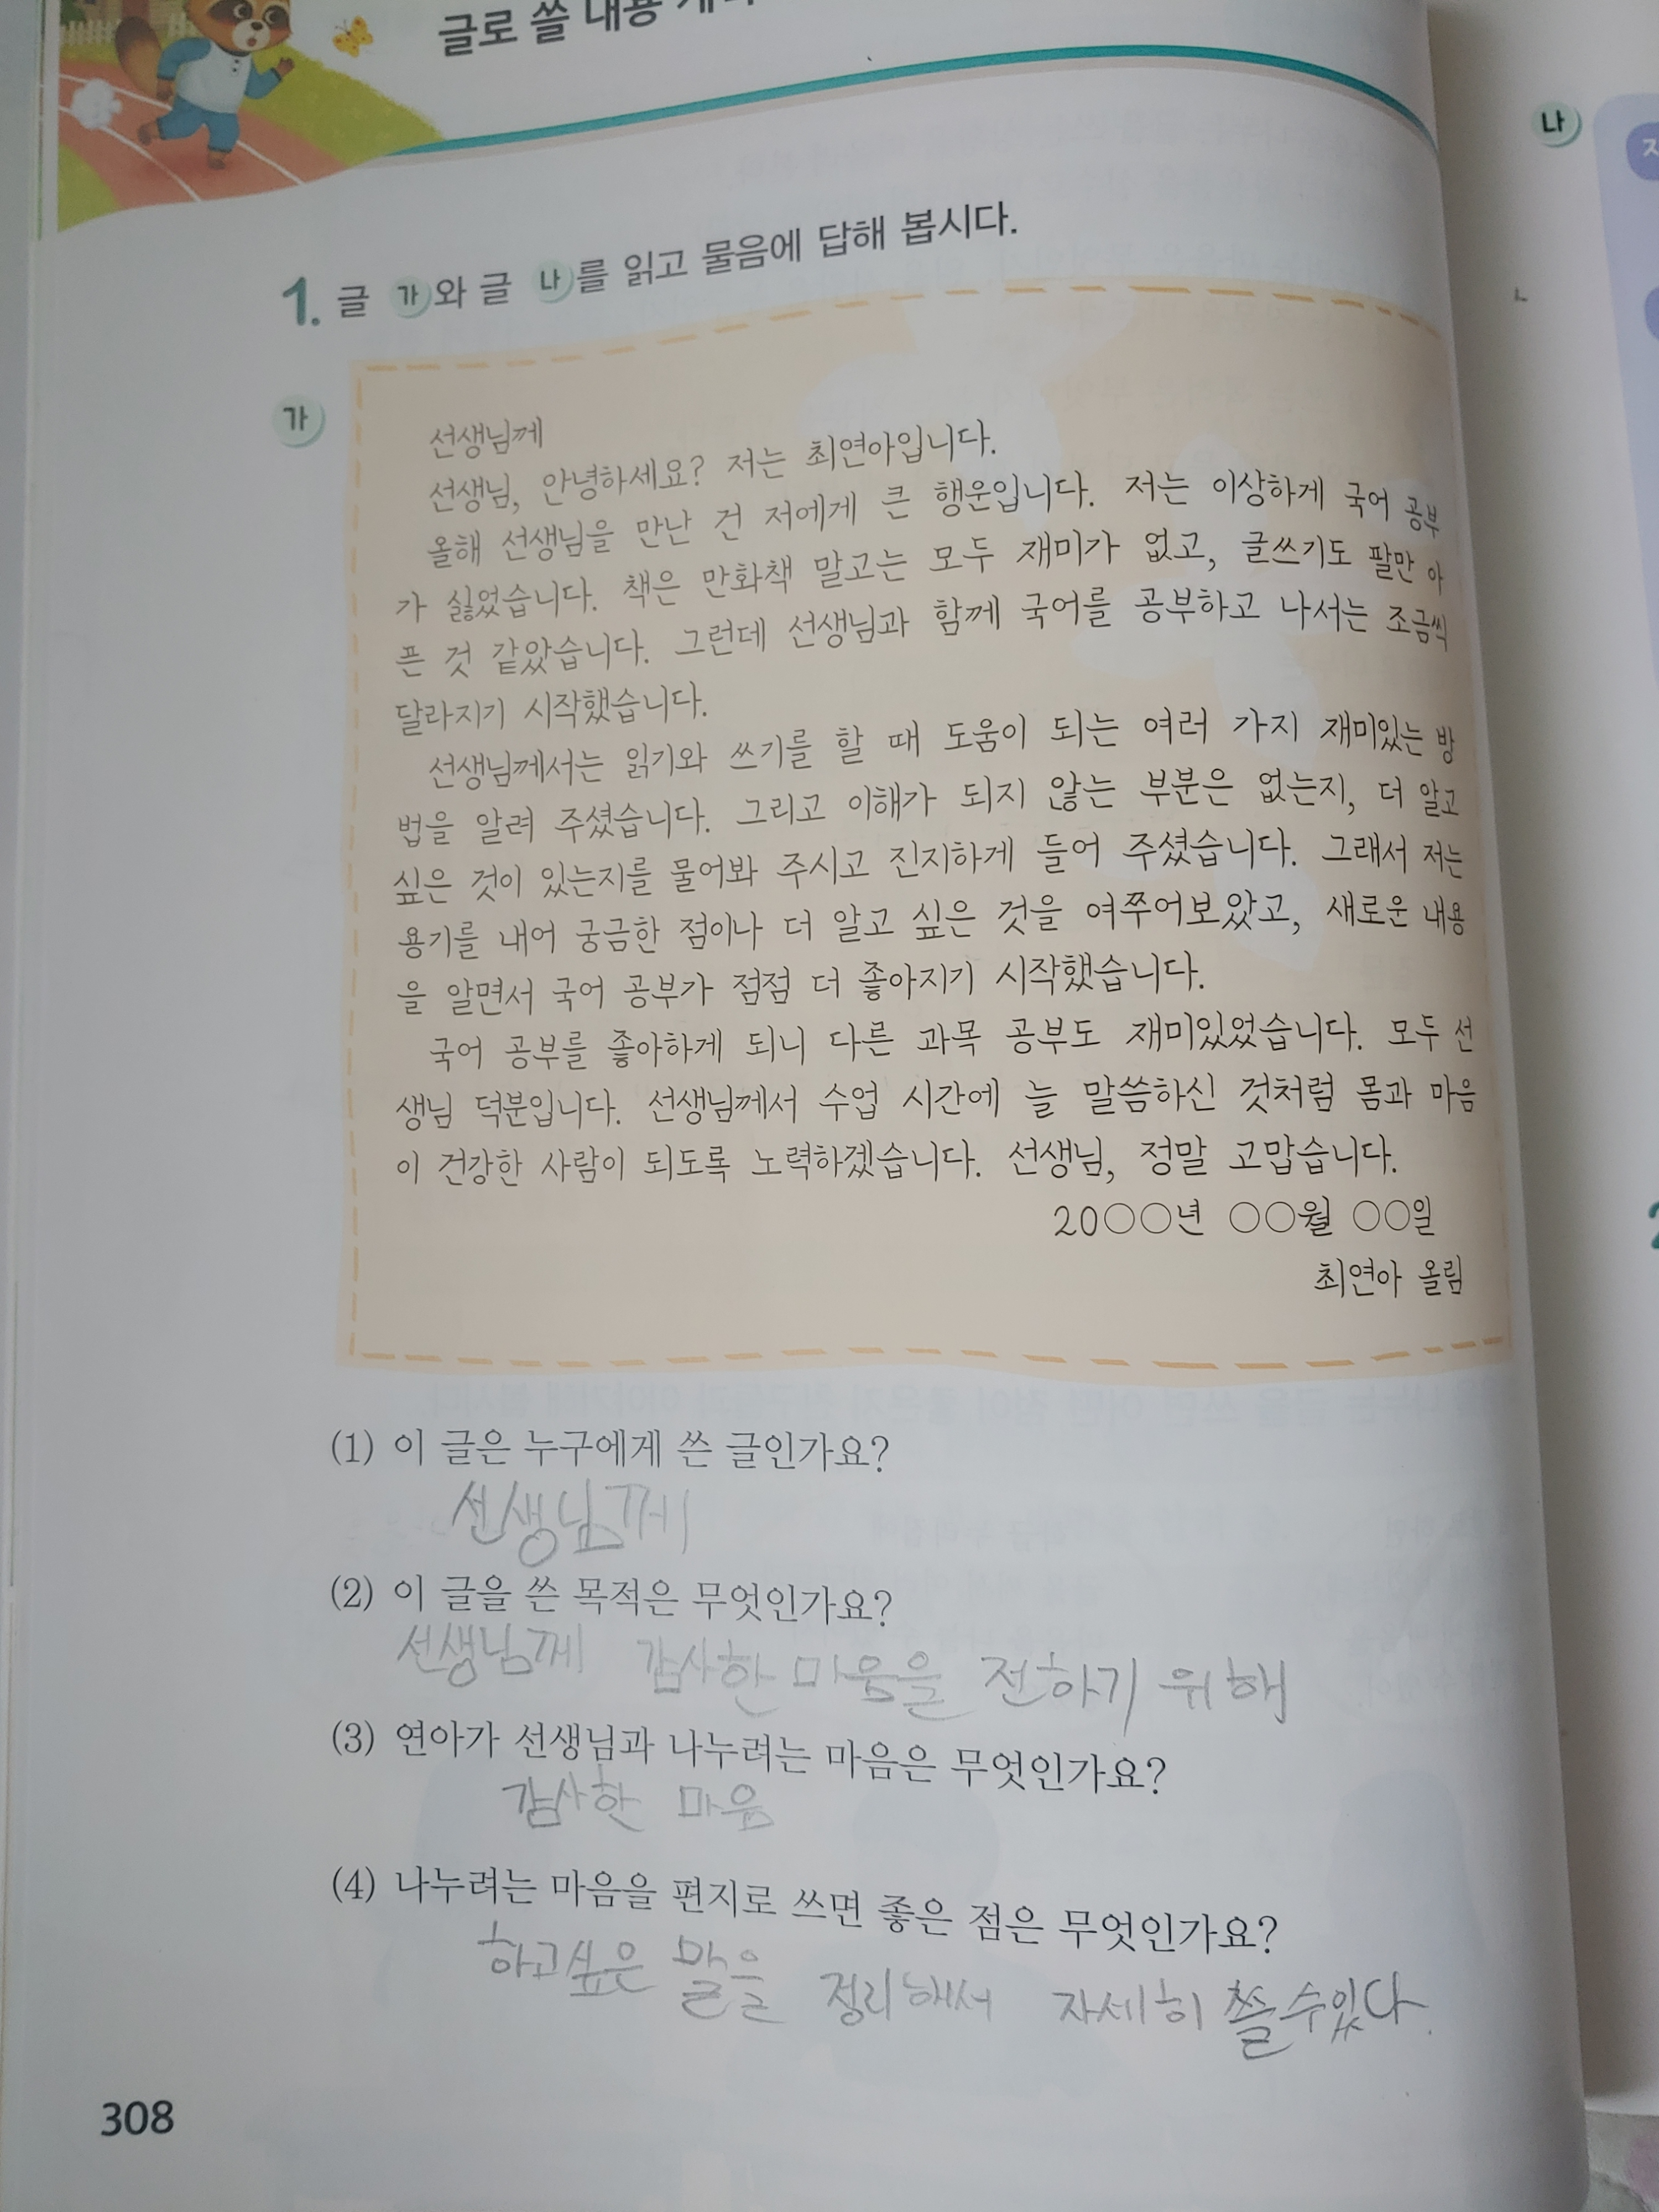 글로 쓸 내용
1. 글 가와 글 나를 읽고 물음에 답해 봅시다.
가
선생님께
선생님, 안녕하세요? 저는 최연아입니다.
올해 선생님을 만난 건 저에게 큰 행운입니다. 저는 이상하게 국어 공부
가 싫었습니다. 책은 만화책 말고는 모두 재미가 없고, 글쓰기도 팔만 아
픈 것 같았습니다. 그런데 선생님과 함께 국어를 공부하고 나서는 조금씩
달라지기 시작했습니다.
선생님께서는 읽기와 쓰기를 할 때 도움이 되는 여러 가지 재미있는 방
법을 알려 주셨습니다. 그리고 이해가 되지 않는 부분은 없는지, 더 알고
싶은 것이 있는지를 물어봐 주시고 진지하게 들어 주셨습니다. 그래서 저는
용기를 내어 궁금한 점이나 더 알고 싶은 것을 여쭈어보았고, 새로운 내용
을 알면서 국어 공부가 점점 더 좋아지기 시작했습니다.
국어 공부를 좋아하게 되니 다른 과목 공부도 재미있었습니다. 모두 선
생님 덕분입니다. 선생님께서 수업 시간에 늘 말씀하신 것처럼 몸과 마음
이 건강한 사람이 되도록 노력하겠습니다. 선생님, 정말 고맙습니다.
20○○년 ○○월 ○○일
최연아 올림
(1) 이 글은 누구에게 쓴 글인가요?
선생님께
(2) 이 글을 쓴 목적은 무엇인가요?
선생님께 감사한 마음을 전하기 위해
(3) 연아가 선생님과 나누려는 마음은 무엇인가요?
감사한 마음
(4) 나누려는 마음을 편지로 쓰면 좋은 점은 무엇인가요?
하고싶은 말을 정리해서 자세히 쓸 수있다.
308
나